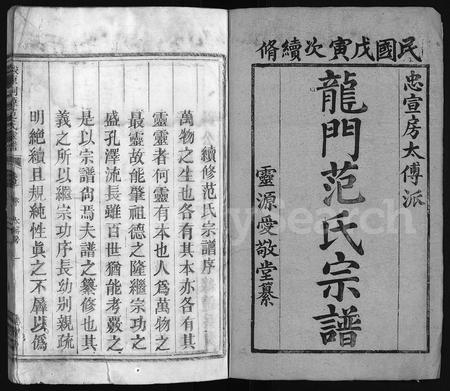 民國戊寅次續脩
忠宣房太傅派
龍門范氏宗譜
靈源愛敬堂纂
續修范氏宗譜序
萬物之生也各有其本亦各有其
靈靈者何靈有本也人爲萬物之
最靈故能肇祖德之隆繼宗功之
盛孔澤流長雖百世猶能考覈之
是以宗譜尙焉夫譜之纂修也其
義之所以繼宗功序長幼別親疏
明絶續且規純性眞之不屪以僞